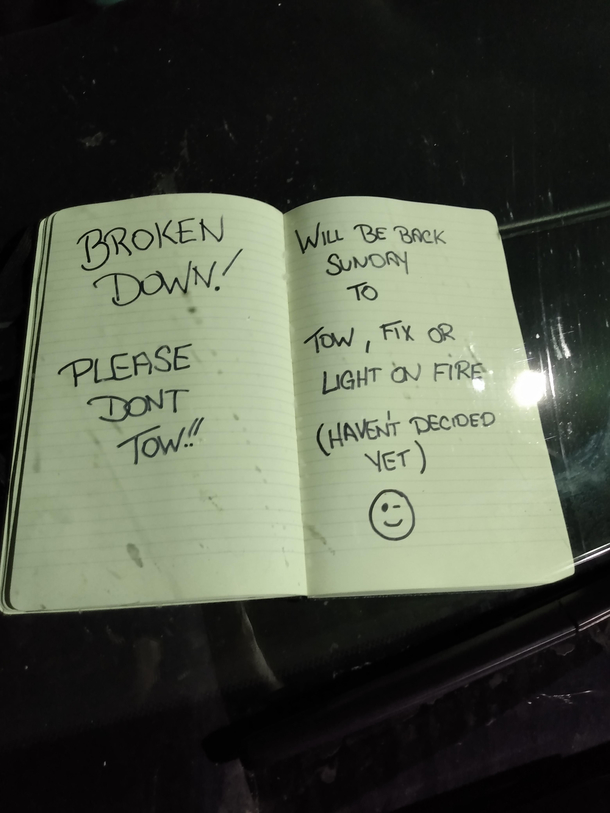 BROKEN
DOWN!
PLEASE
DONT
TOW!!
WILL BE BACK
SUNDAY
TO
TOW, FIX OR
LIGHT ON FIRE
(HAVEN'T DECIDED
YET)